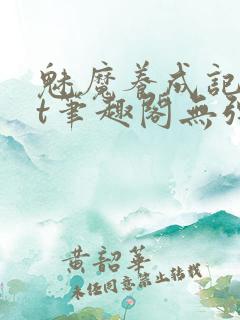 魅魔養成記
t筆趣閣無
黄韶華
未经同意禁止转载